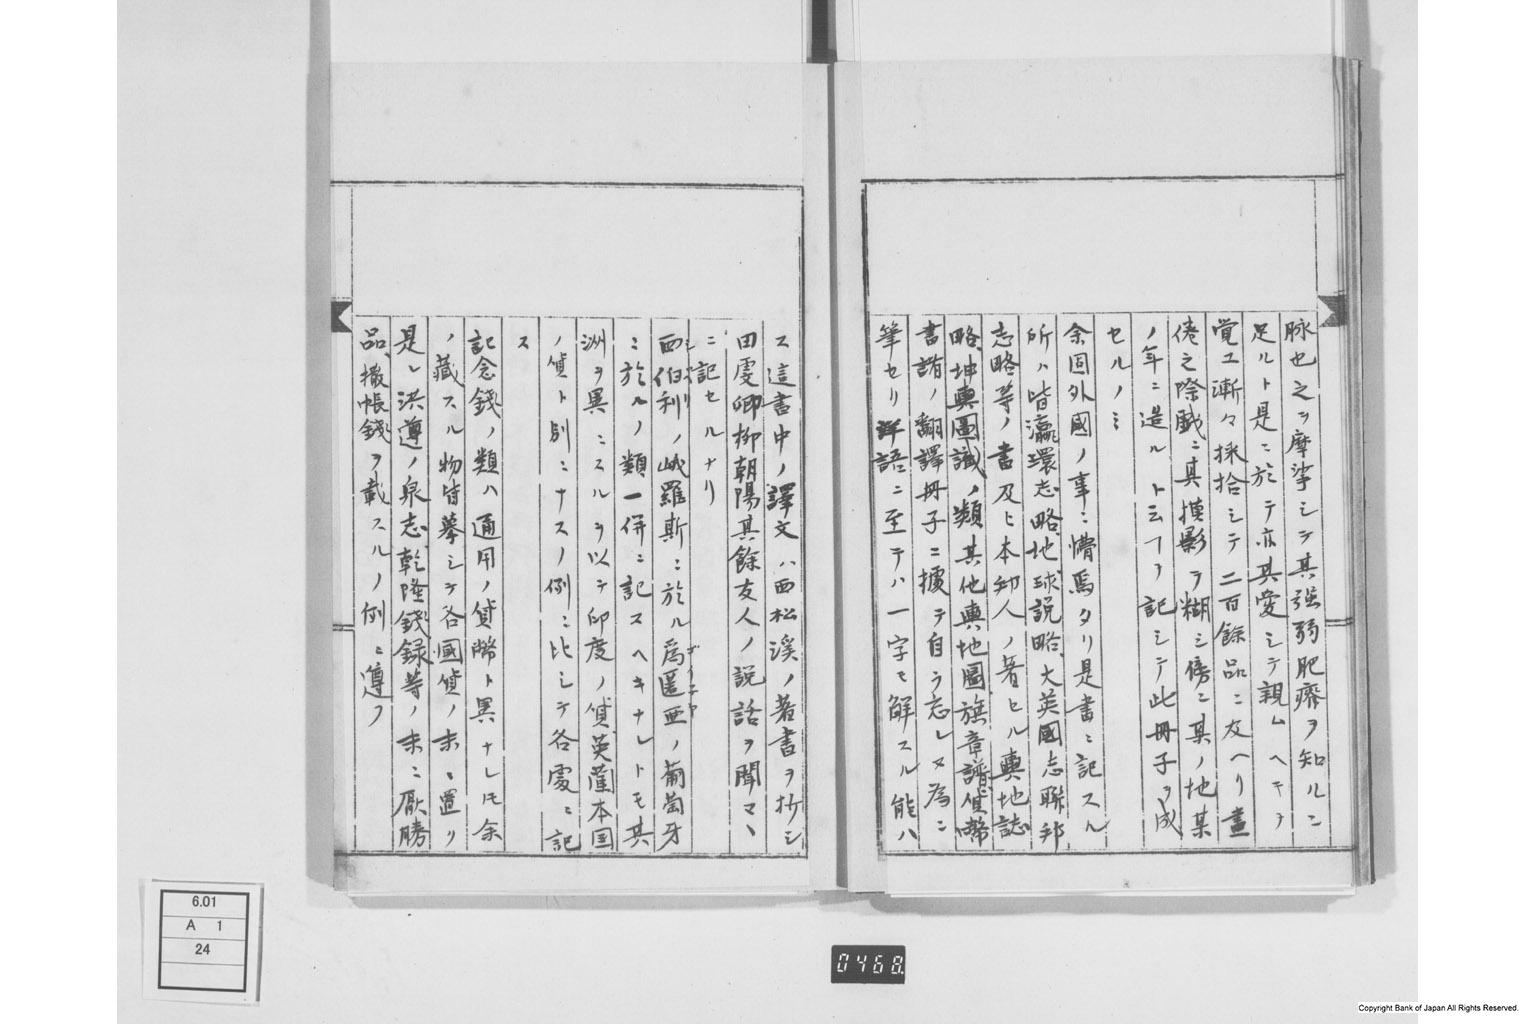 脉也之ヲ摩挲シテ其強弱肥瘠ヲ知ルニ
足ルト是ニ於テ亦其愛シテ親ムヘキヲ
覚エ漸々採拾シテ二百餘品ニ及ヘリ晝
倦之際戯ニ其摸影ヲ糊シ傍ニ其ノ地某
ノ年ニ造ルト云フヿ記シテ此冊子ヲ成
セルノミ
余固外國ノ事ニ懵焉タリ是書ニ記スル
所ハ皆瀛環志略地球説略大英國志聯邦
志略等ノ書及ヒ本邦人ノ著セル輿地誌
略坤輿圖識ノ類其他輿地圖旗章譜貨幣
書諸ノ翻譯冊子ニ據テ自ラ忘レヌ為ニ
筆セリ詳語ニ至テハ一字モ解スル能ハ
ス這書中ノ譯文ハ西松溪ノ著書ヲ抄シ
田雯卿柳朝陽其餘友人ノ説話ヲ聞マヽ
ニ記セルナリ
西伯利ノ峨羅斯ニ於ル為匿亜ノ葡萄牙
ニ於ルノ類一併ニ記スヘキナレトモ其
洲ヲ異ニスルヲ以テ印度ノ貨英蘭本国
ノ貨ト別ニナスノ例ニ比シテ各處ニ記
ス
記念錢ノ類ハ通用ノ貨幣ト異ナレモ余
ノ藏スル物皆摹シテ各國貨ノ末ニ置リ
是レ洪遵ノ泉志乾隆錢録等ノ末ニ厭勝
品、撒帳錢ヲ載スルノ例ニ遵フ
6.01
A 1
24
0468
Copyright Bank of Japan All Rights Reserved.